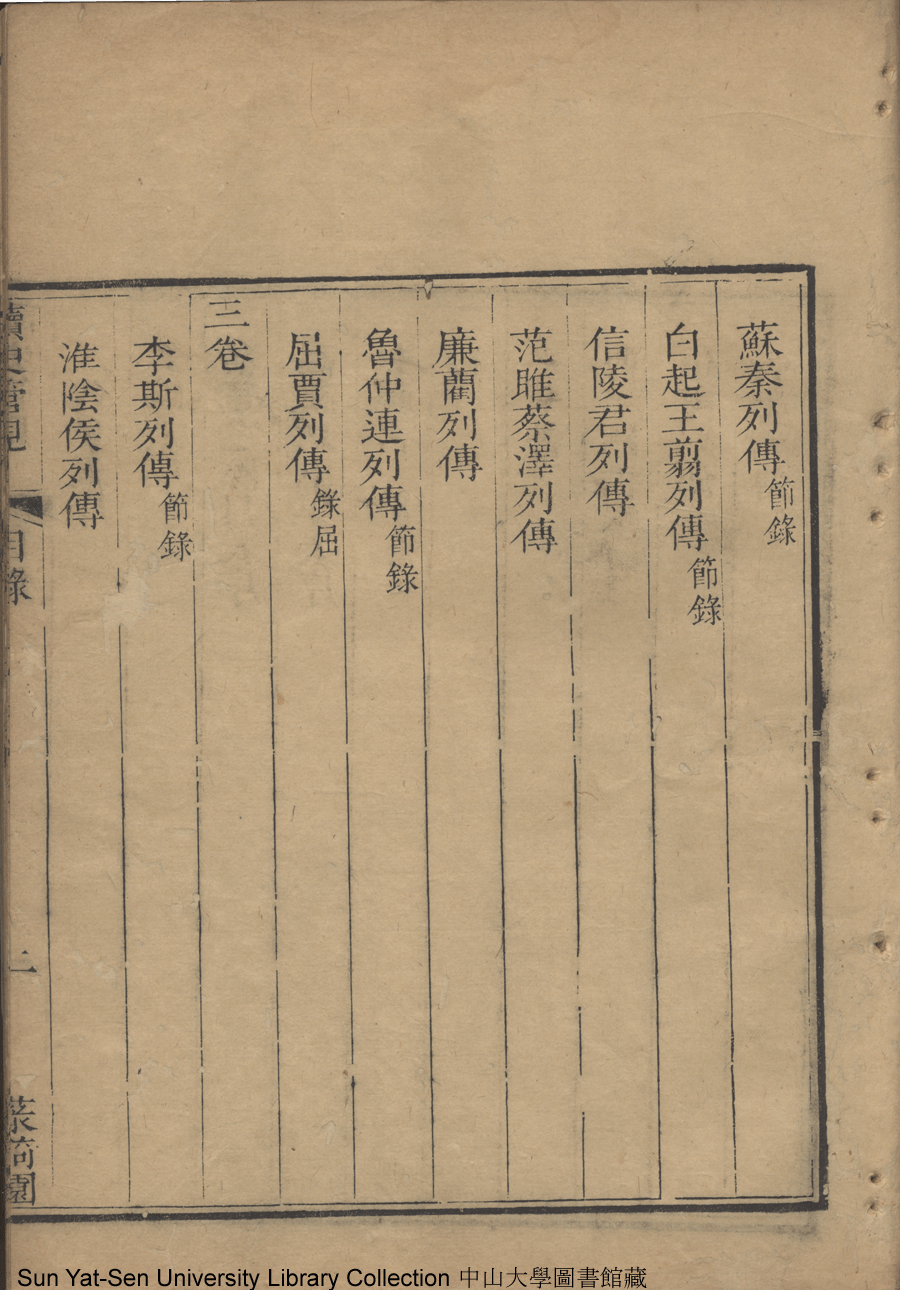 蘇秦列傳節錄
白起王翦列傳節錄
信陵君列傳
范雎蔡澤列傳
廉藺列傳
魯仲連列傳節錄
屈賈列傳錄屈
三卷
李斯列傳節錄
淮陰侯列傳
讀史管見
目錄
二
園
Sun Yat-Sen University Library Collection 中山大學圖書館藏